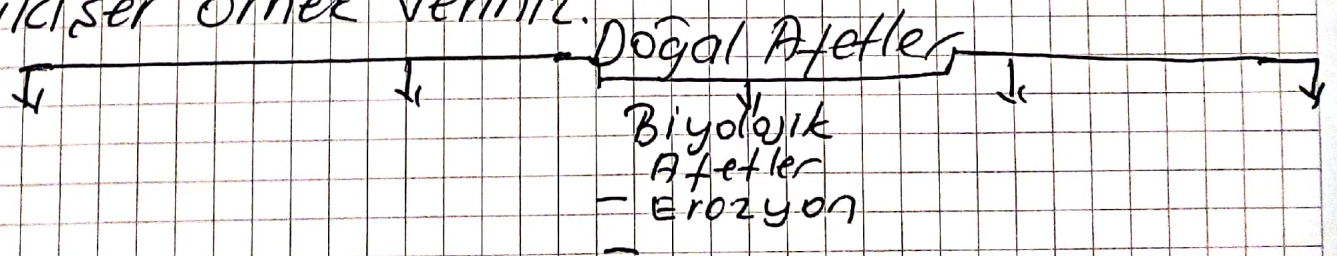 ikişer örnek veriniz.
Doğal Afetler
Biyolojik
Afetler
- Erozyon
-